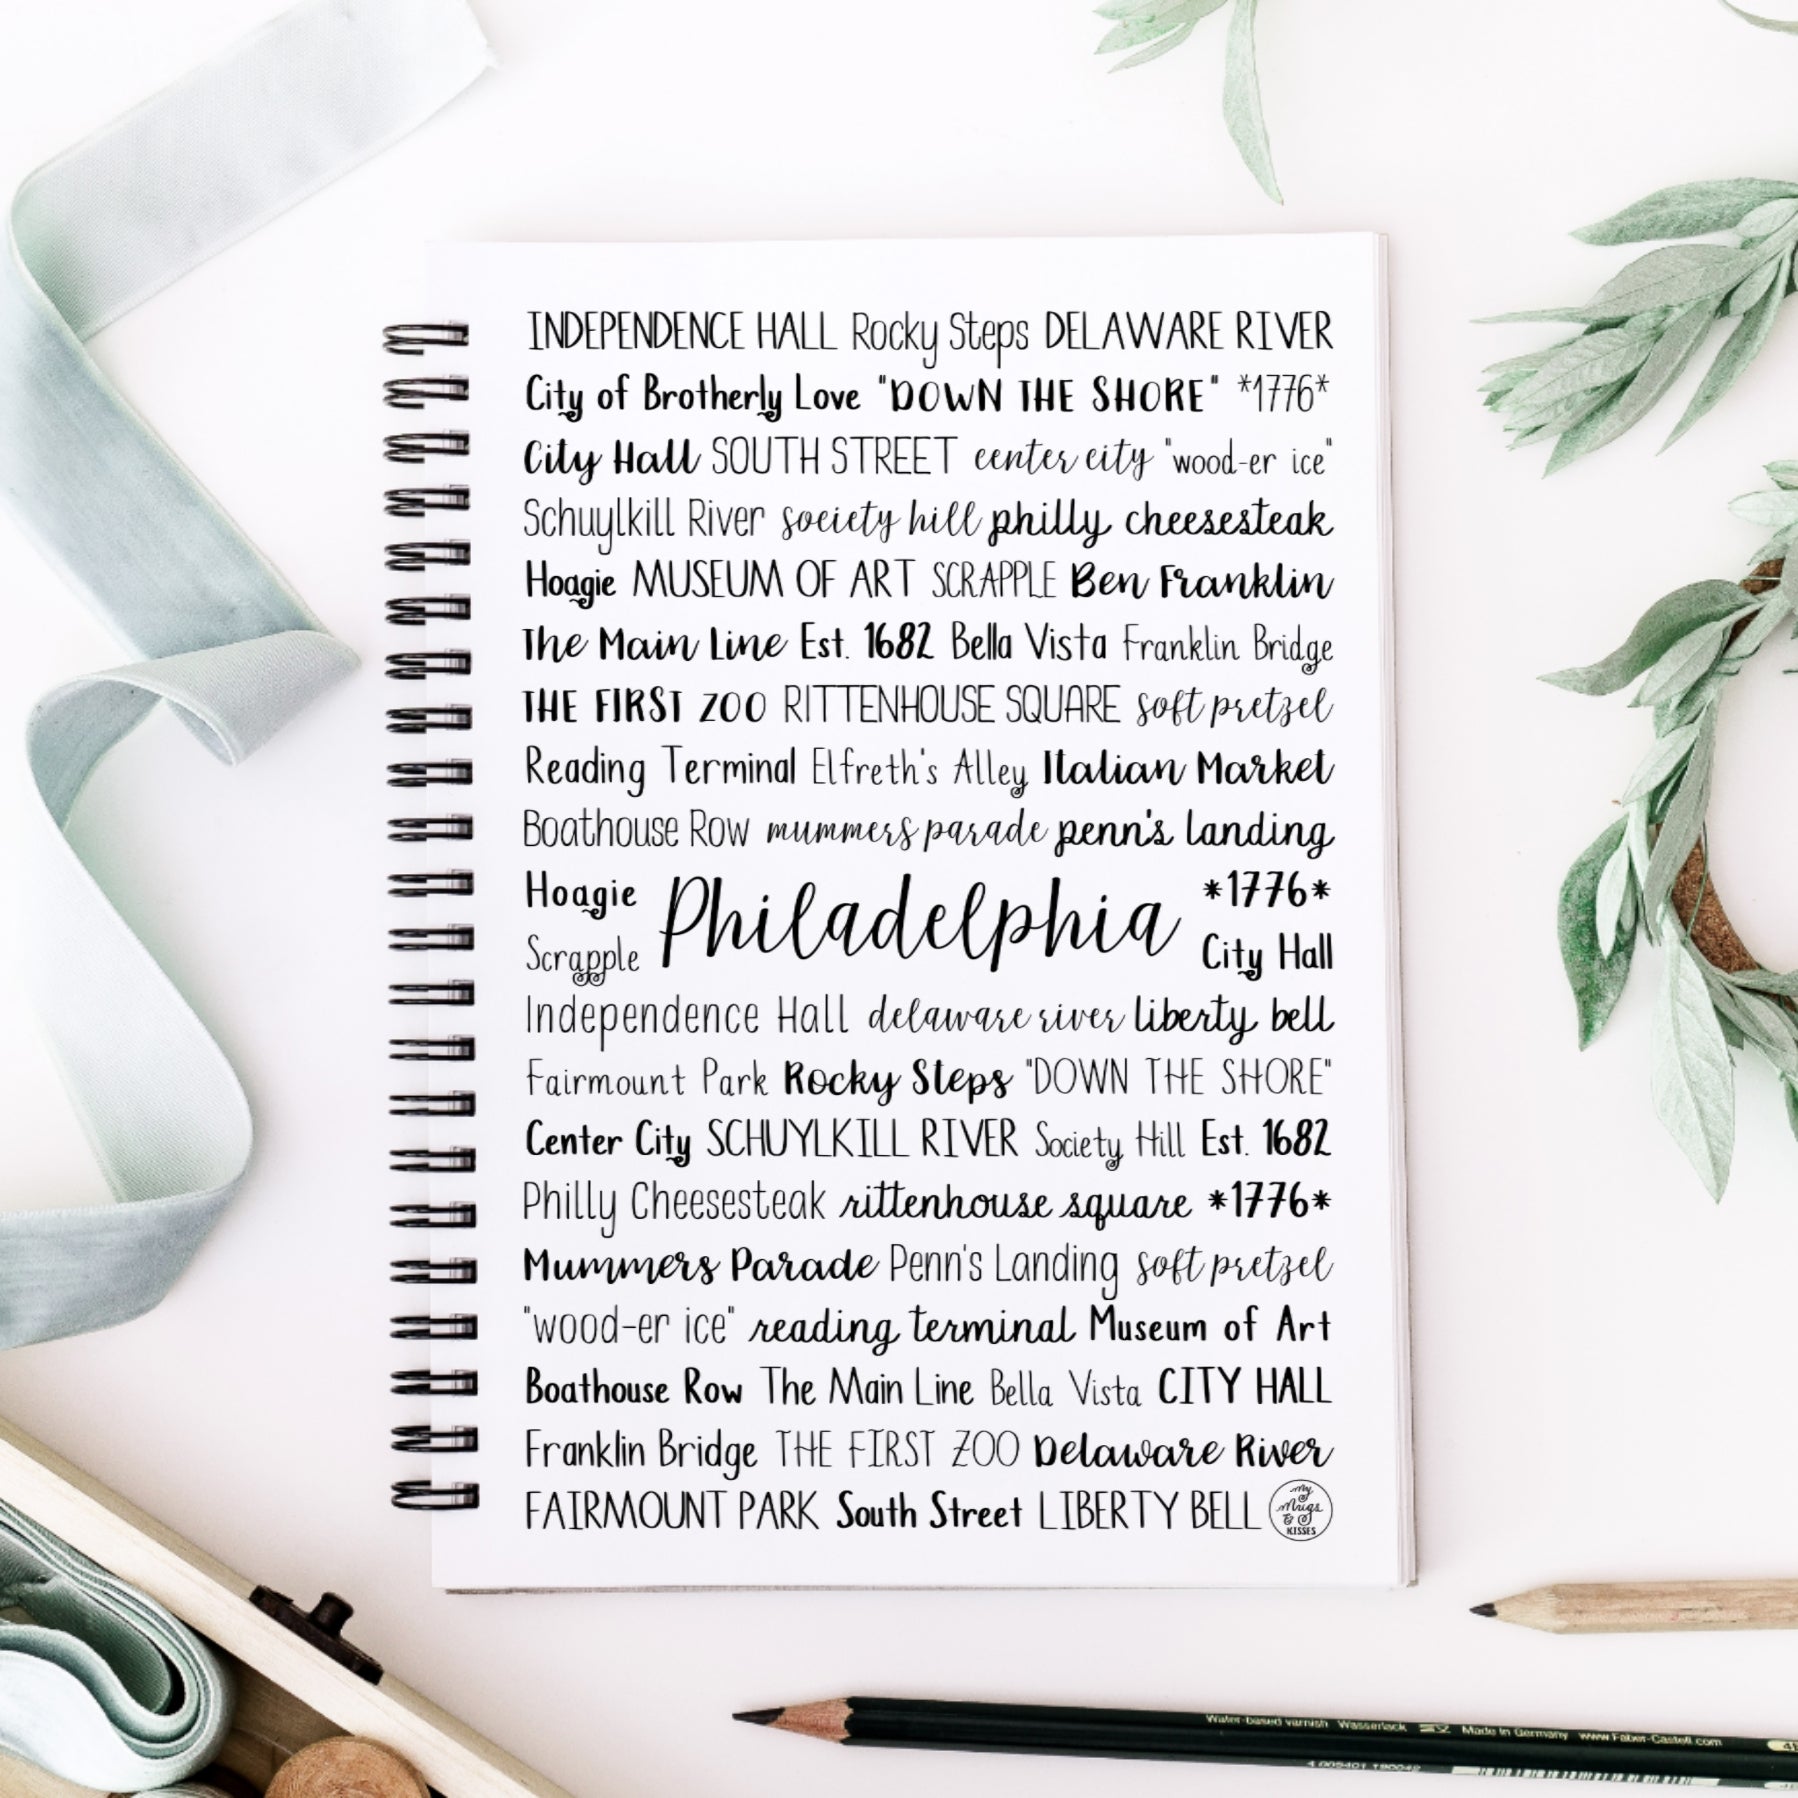 INDEPENDENCE HALL Rocky Steps DELAWARE RIVER
City of Brotherly Love "DOWN THE SHORE" *1776*
City Hall SOUTH STREET center city "wood-er ice"
Schuylkill River society hill philly cheesesteak
Hoagie MUSEUM OF ART SCRAPPLE Ben Franklin
The Main Line Est. 1682 Bella Vista Franklin Bridge
THE FIRST ZOO RITTENHOUSE SQUARE soft pretzel
Reading Terminal Elfreth's Alley Italian Market
Boathouse Row mummers parade penn's landing
Hoagie
Scrapple
Philadelphia
*1776*
City Hall
Independence Hall delaware river liberty bell
Fairmount Park Rocky Steps "DOWN THE SHORE"
Center City SCHUYLKILL RIVER Society Hill Est. 1682
Philly Cheesesteak rittenhouse square *1776*
Mummers Parade Penn's Landing soft pretzel
"wood-er ice" reading terminal Museum of Art
Boathouse Row The Main Line Bella Vista CITY HALL
Franklin Bridge THE FIRST ZOO Delaware River
FAIRMOUNT PARK South Street LIBERTY BELL
My
Mugs
&
KISSES
Water-based varnish Wasserlack Made in Germany www.Faber-Castell.com
4 005401 190042